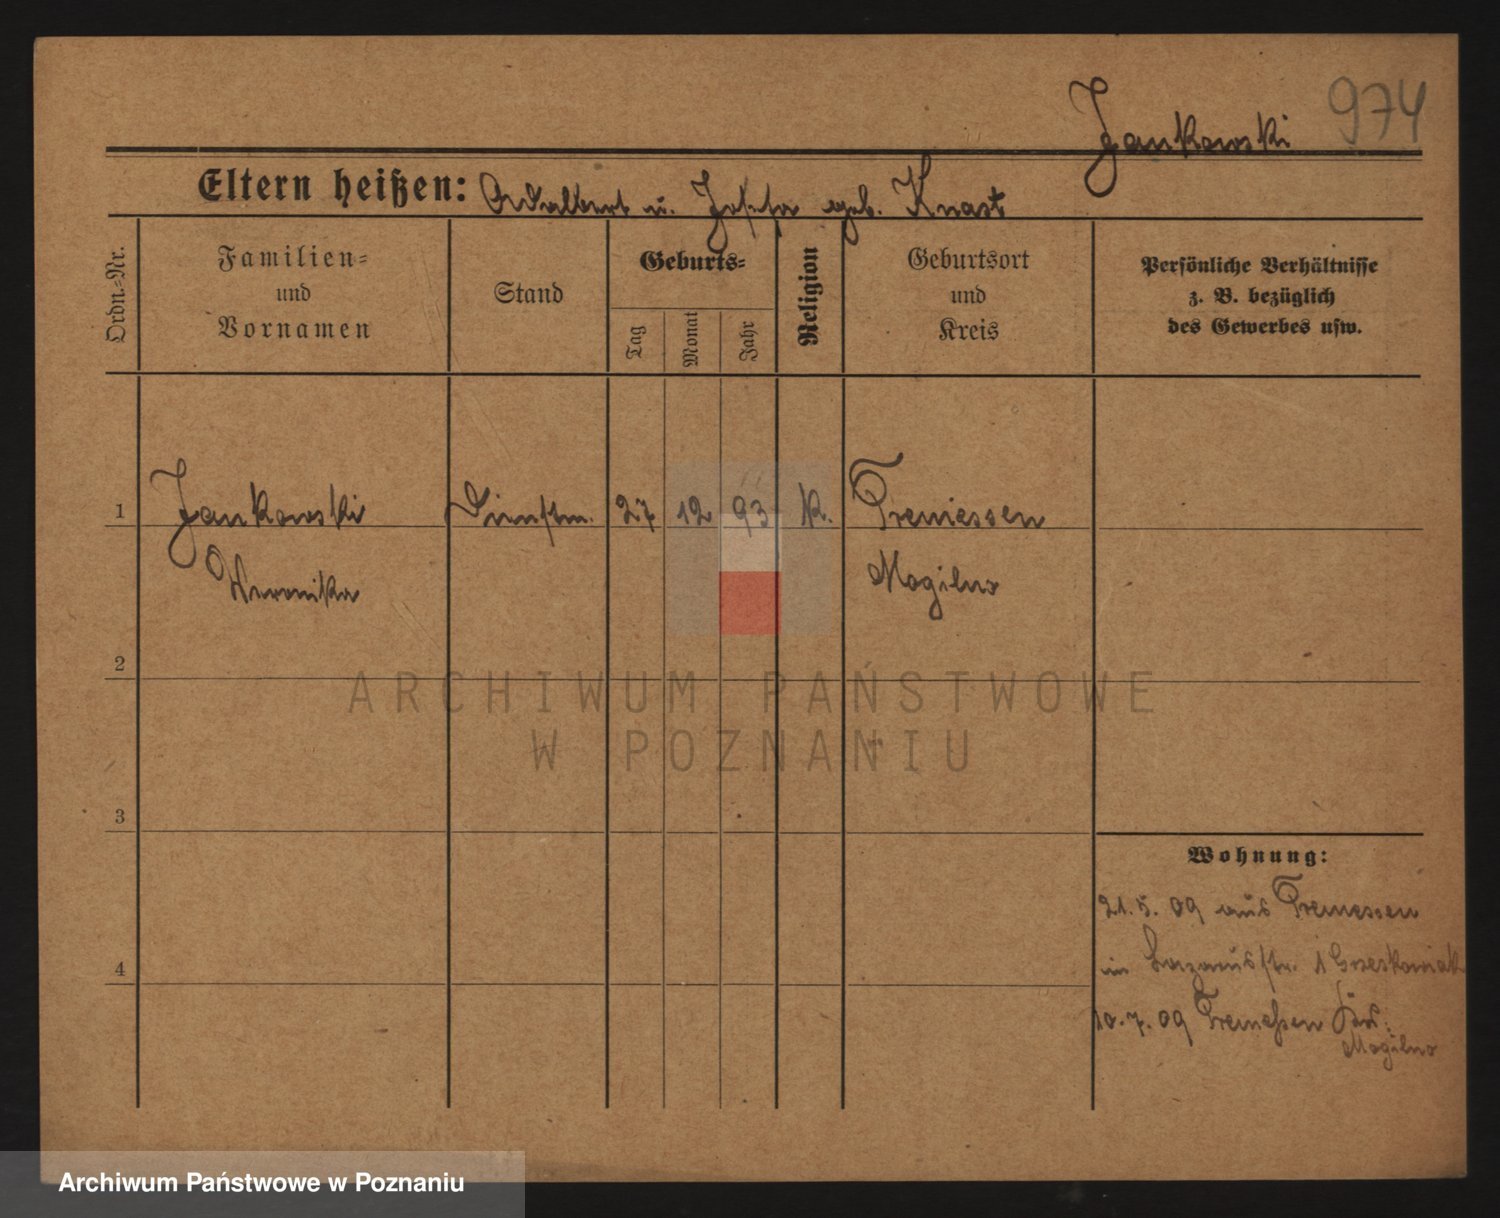 Jankowski 974
Eltern heißen: Adalbert u. Josefa geb. Knast
Ordn.-Nr.
Familien-
und
Vornamen
Stand
Geburts-
Tag
Monat
Jahr
Religion
Geburtsort
und
Kreis
Persönliche Verhältnisse
z. B. bezüglich
des Gewerbes usw.
1 Jankowski Dienstm. 27 12 93 k. Tremessen
Weronika Mogilno
2
3
4
Wohnung:
21. 5. 09 aus Tremessen
in Lazarusstr. 1 Grzeskowiak
10. 7. 09 Tremessen
Mogilno
ARCHIWUM PAŃSTWOWE
W POZNANIU
Archiwum Państwowe w Poznaniu